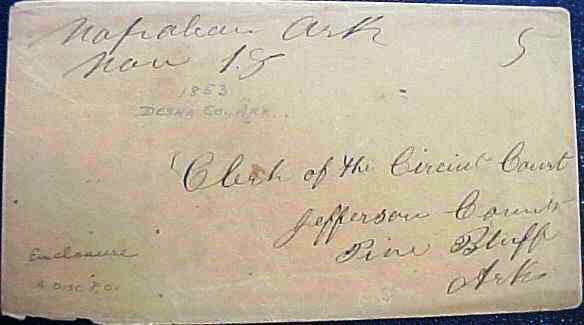 Napoleon Ark
Nov 15
5
1853
DESHA CO. ARK.
Clerk of the Circuit Court
Jefferson County
Pine Bluff
Ark
Enclosure
DISC P.O.